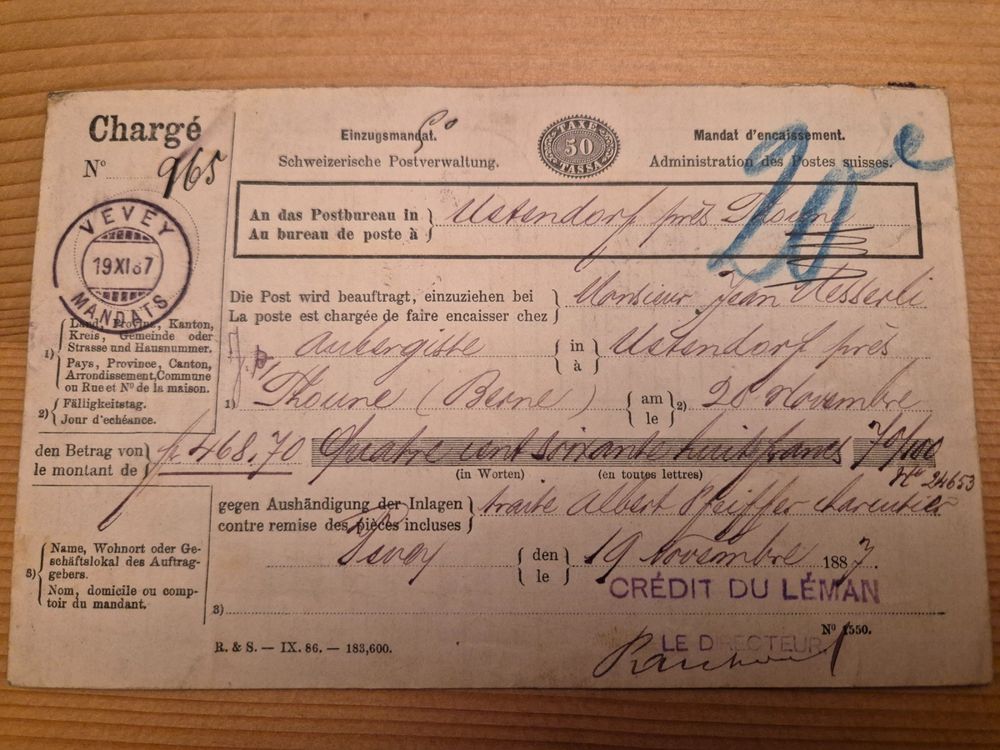 Chargé
N° 965
VEVEY
19 XI 87
MANDATS
Einzugsmandat.
Schweizerische Postverwaltung.
TAXE
50
TASSA
Mandat d'encaissement.
Administration des Postes suisses.
20 c
An das Postbureau in
Au bureau de poste à
Uetendorf près Thoune
Die Post wird beauftragt, einzuziehen bei
La poste est chargée de faire encaisser chez
Monsieur Jean Messerli
1) Land, Provinz, Kanton,
Kreis, Gemeinde oder
Strasse und Hausnummer.
Pays, Province, Canton,
Arrondissement, Commune
ou Rue et N° de la maison.
2) Fälligkeitstag.
Jour d'echéance.
Aubergiste in à Uetendorf près
1) Thoune (Berne) am le 2) 20 Novembre
den Betrag von
le montant de
fr 468.70 Quatre cent soixante huit francs 70/100
(in Worten) (en toutes lettres)
No 24653
gegen Aushändigung der Inlagen
contre remise des pièces incluses
traite Albert Pfeiffer charcutier
Vevey den le 19 Novembre 1887.
3) Name, Wohnort oder Ge-
schäftslokal des Auftrag-
gebers.
Nom, domicile ou comp-
toir du mandant.
CRÉDIT DU LÉMAN
3)
N° 1550.
LE DIRECTEUR
R. & S. — IX. 86. — 183,600.